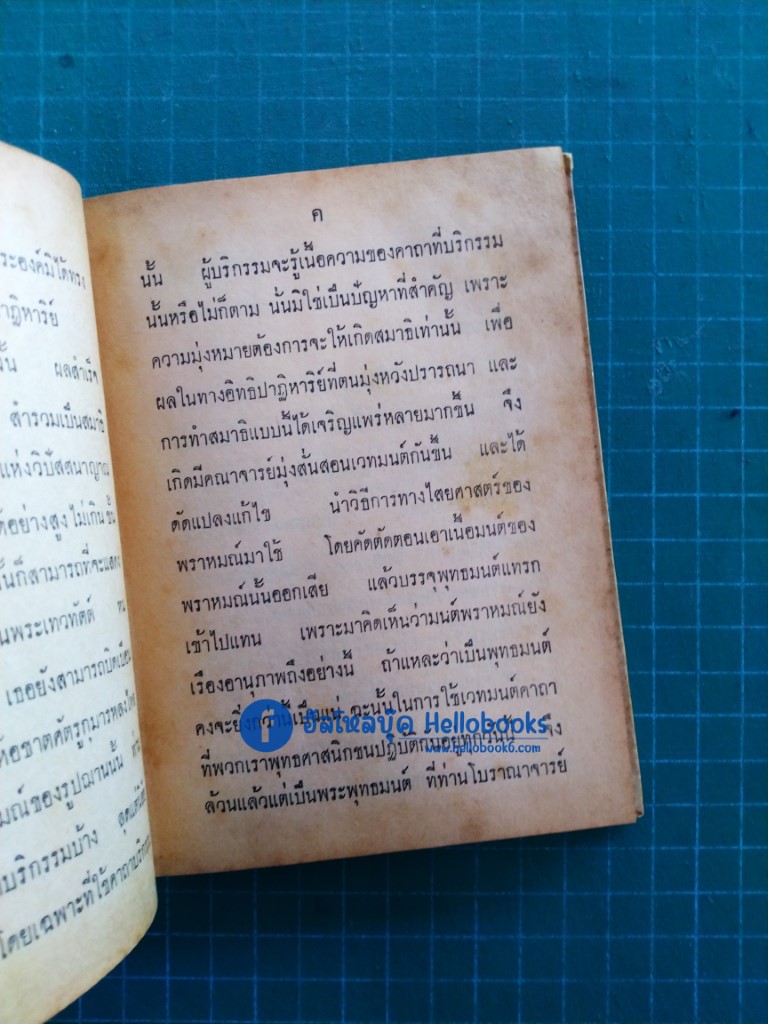 ระองค์มิได้ทรง
าฏิหาริย์
ั้น ผลสำเร็จ
สำรวมเป็นสมาธิ
แห่งวิปัสสนาญาณ
ด้อย่างสูง ไม่เกิน ขั้น
ั้นก็สามารถที่จะแสดง
นพระเทวทัตต์ ทน
เธอยังสามารถบิดเบือน
ห้อชาตศัตรูกุมารหลงใหล
มณ์ของรูปฌานนั้น
บริกรรมบ้าง
โดยเฉพาะที่ใช้คาถาบริกร
ค
นั้น ผู้บริกรรมจะรู้เนื้อความของคาถาที่บริกรรม
นั้นหรือไม่ก็ตาม นั่นมิใช่เป็นปัญหาที่สำคัญ เพราะ
ความมุ่งหมายต้องการจะให้เกิดสมาธิเท่านั้น เพื่อ
ผลในทางอิทธิปาฏิหาริย์ที่ตนมุ่งหวังปรารถนา และ
การทำสมาธิแบบนี้ได้เจริญแพร่หลายมากขึ้น จึง
เกิดมีคณาจารย์มุ่งสั่นสอนเวทมนต์กันขึ้น และได้
ดัดแปลงแก้ไข นำวิธีการทางไสยศาสตร์ของ
พราหมณ์มาใช้ โดยคัดตัดตอนเอาเนื้อมนต์ของ
พราหมณ์นั้นออกเสีย แล้วบรรจุพุทธมนต์แทรก
เข้าไปแทน เพราะมาคิดเห็นว่ามนต์พราหมณ์ยัง
เรืองอานุภาพถึงอย่างนี้ ถ้าแหละว่าเป็นพุทธมนต์
คงจะยิ่งกว่านี้เป็นแน่ ฉะนั้นในการใช้เวทมนต์คาถา
ฮัลโหลบุ๊ค Hellobooks
www.hellobook6.com
ที่พวกเราพุทธศาสนิกชนปฏิบัติกันอยู่ทุกวันนั้น จึง
ล้วนแล้วแต่เป็นพระพุทธมนต์ ที่ท่านโบราณาจารย์